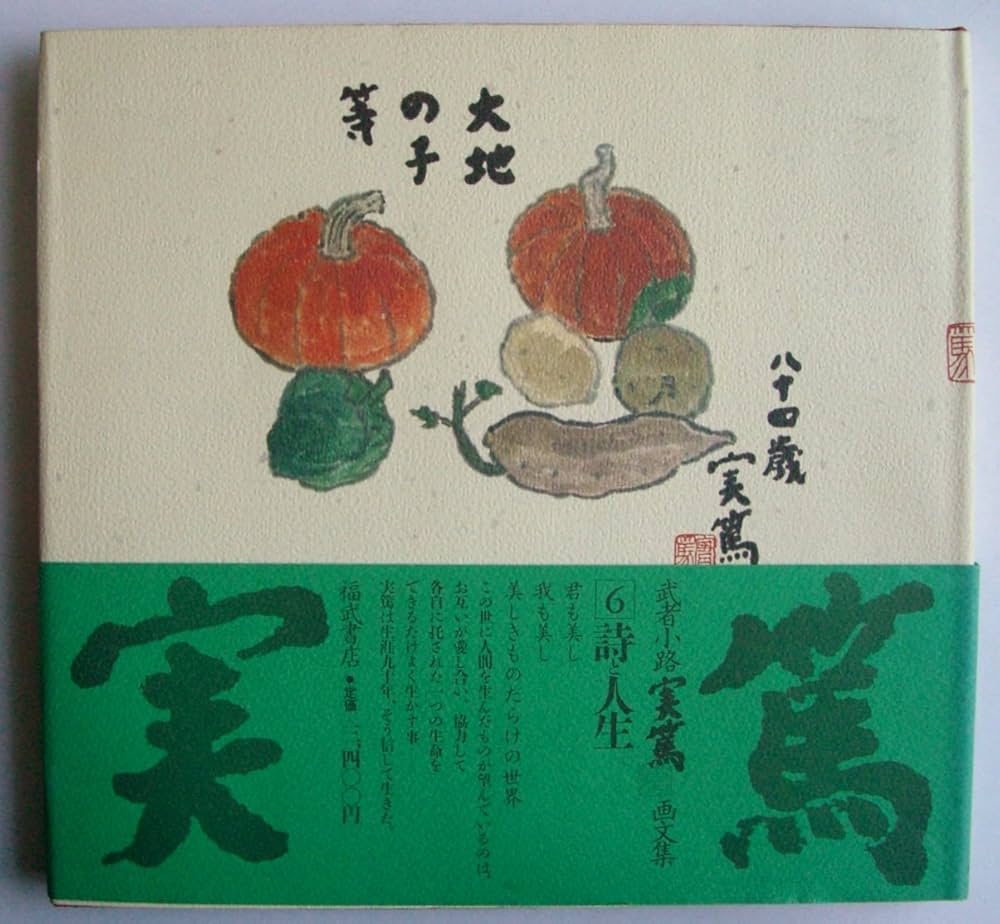 大地
の子
等
八十四歳
実篤
篤
武者小路実篤 画文集
6 詩と人生
君も美し
我も美し
美しきものだらけの世界
この世に人間を生んだものが望んでいるのは、
お互いが愛し合い、協力して
各自に托された一つの生命を
できるだけよく生かす事
実篤は生涯九十年、そう信じて生きた。
福武書店●定価 三、四〇〇円
実
篤